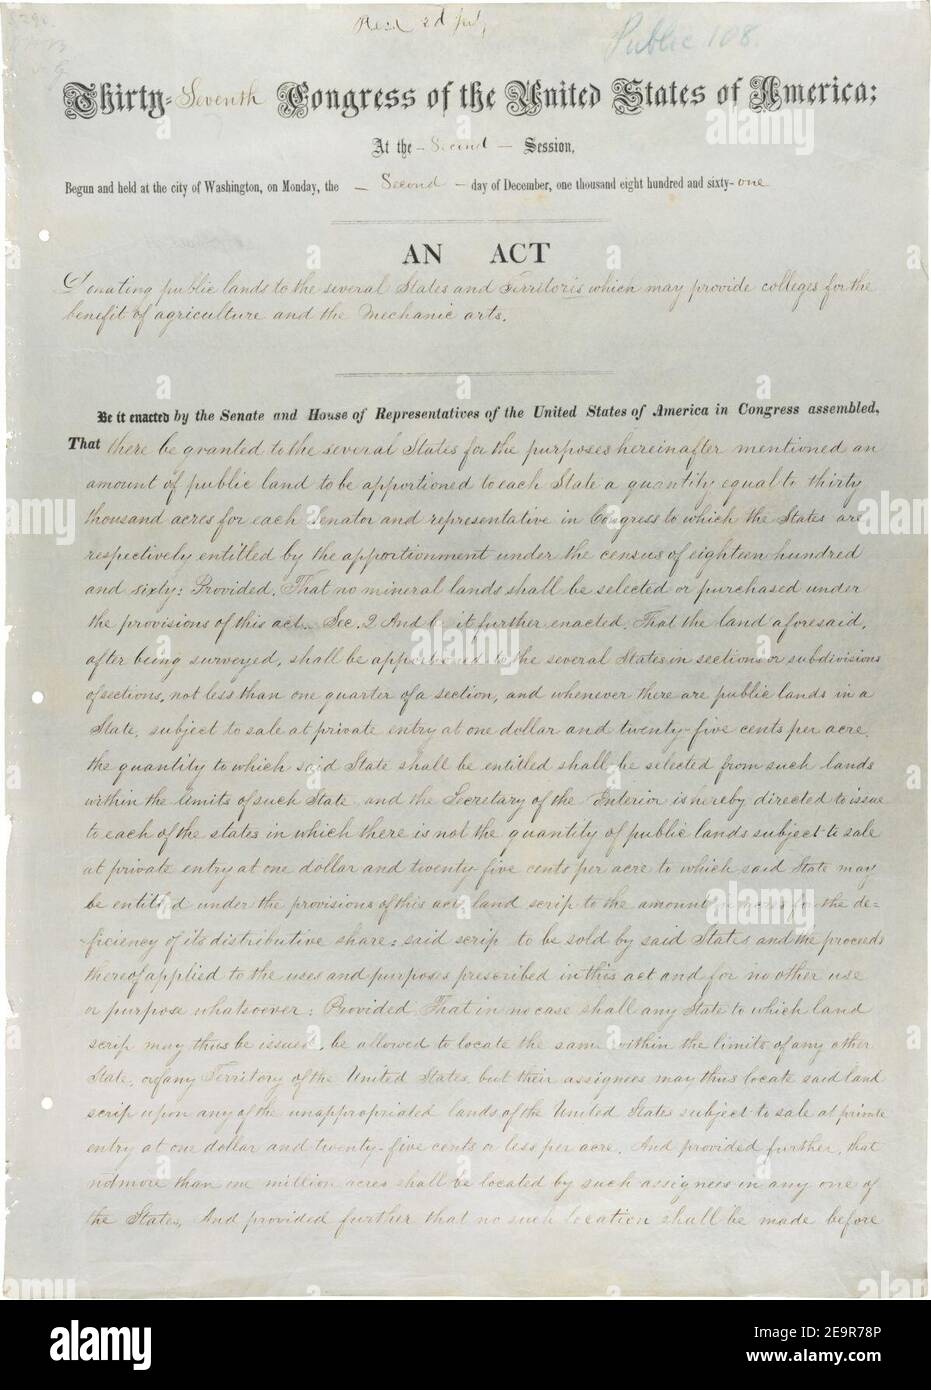 Public 108.
Thirty-Seventh Congress of the United States of America;
At the - Second - Session,
Begun and held at the city of Washington, on Monday, the - Second - day of December, one thousand eight hundred and sixty-one
AN ACT
Donating public lands to the several States and Territoris which may provide colleges for the
benefit of agriculture and the Mechanic arts.
Be it enacted by the Senate and House of Representatives of the United States of America in Congress assembled,
That there be granted to the several States for the purposes hereinafter mentioned an
amount of public land to be apportioned to each State a quantity equal to thirty
thousand acres for each Senator and representative in Congress to which the States are
respectively entitled by the apportionment under the census of eighteen hundred
and sixty: Provided. That no mineral lands shall be selected or purchased under
the provisions of this act. Sec. 2 And be it further enacted. That the land aforesaid,
after being surveyed, shall be apportioned to the several States in sections or subdivisions
of sections, not less than one quarter of a section, and whenever there are public lands in a
State, subject to sale at private entry at one dollar and twenty-five cents per acre,
the quantity to which said State shall be entitled shall be selected from such lands
within the limits of such State and the Secretary of the Interior is hereby directed to issue
to each of the states in which there is not the quantity of public lands subject to sale
at private entry at one dollar and twenty five cents per acre to which said State may
be entitled under the provisions of this act, land scrip to the amount in acres for the de=
ficiency of its distributive share: said scrip to be sold by said States and the proceeds
thereof applied to the uses and purposes prescribed in this act and for no other use
or purpose whatsoever: Provided That in no case shall any State to which land
scrip may thus be issued, be allowed to locate the same within the limits of any other
State, or of any Territory of the United States, but their assignees may thus locate said land
scrip upon any of the unappropriated lands of the United States subject to sale at private
entry at one dollar and twenty-five cents or less per acre. And provided further, that
not more than one million acres shall be located by such assignees in any one of
the States, And provided further that no such location shall be made before
alamy
Image ID: 2E9R78P
www.alamy.com